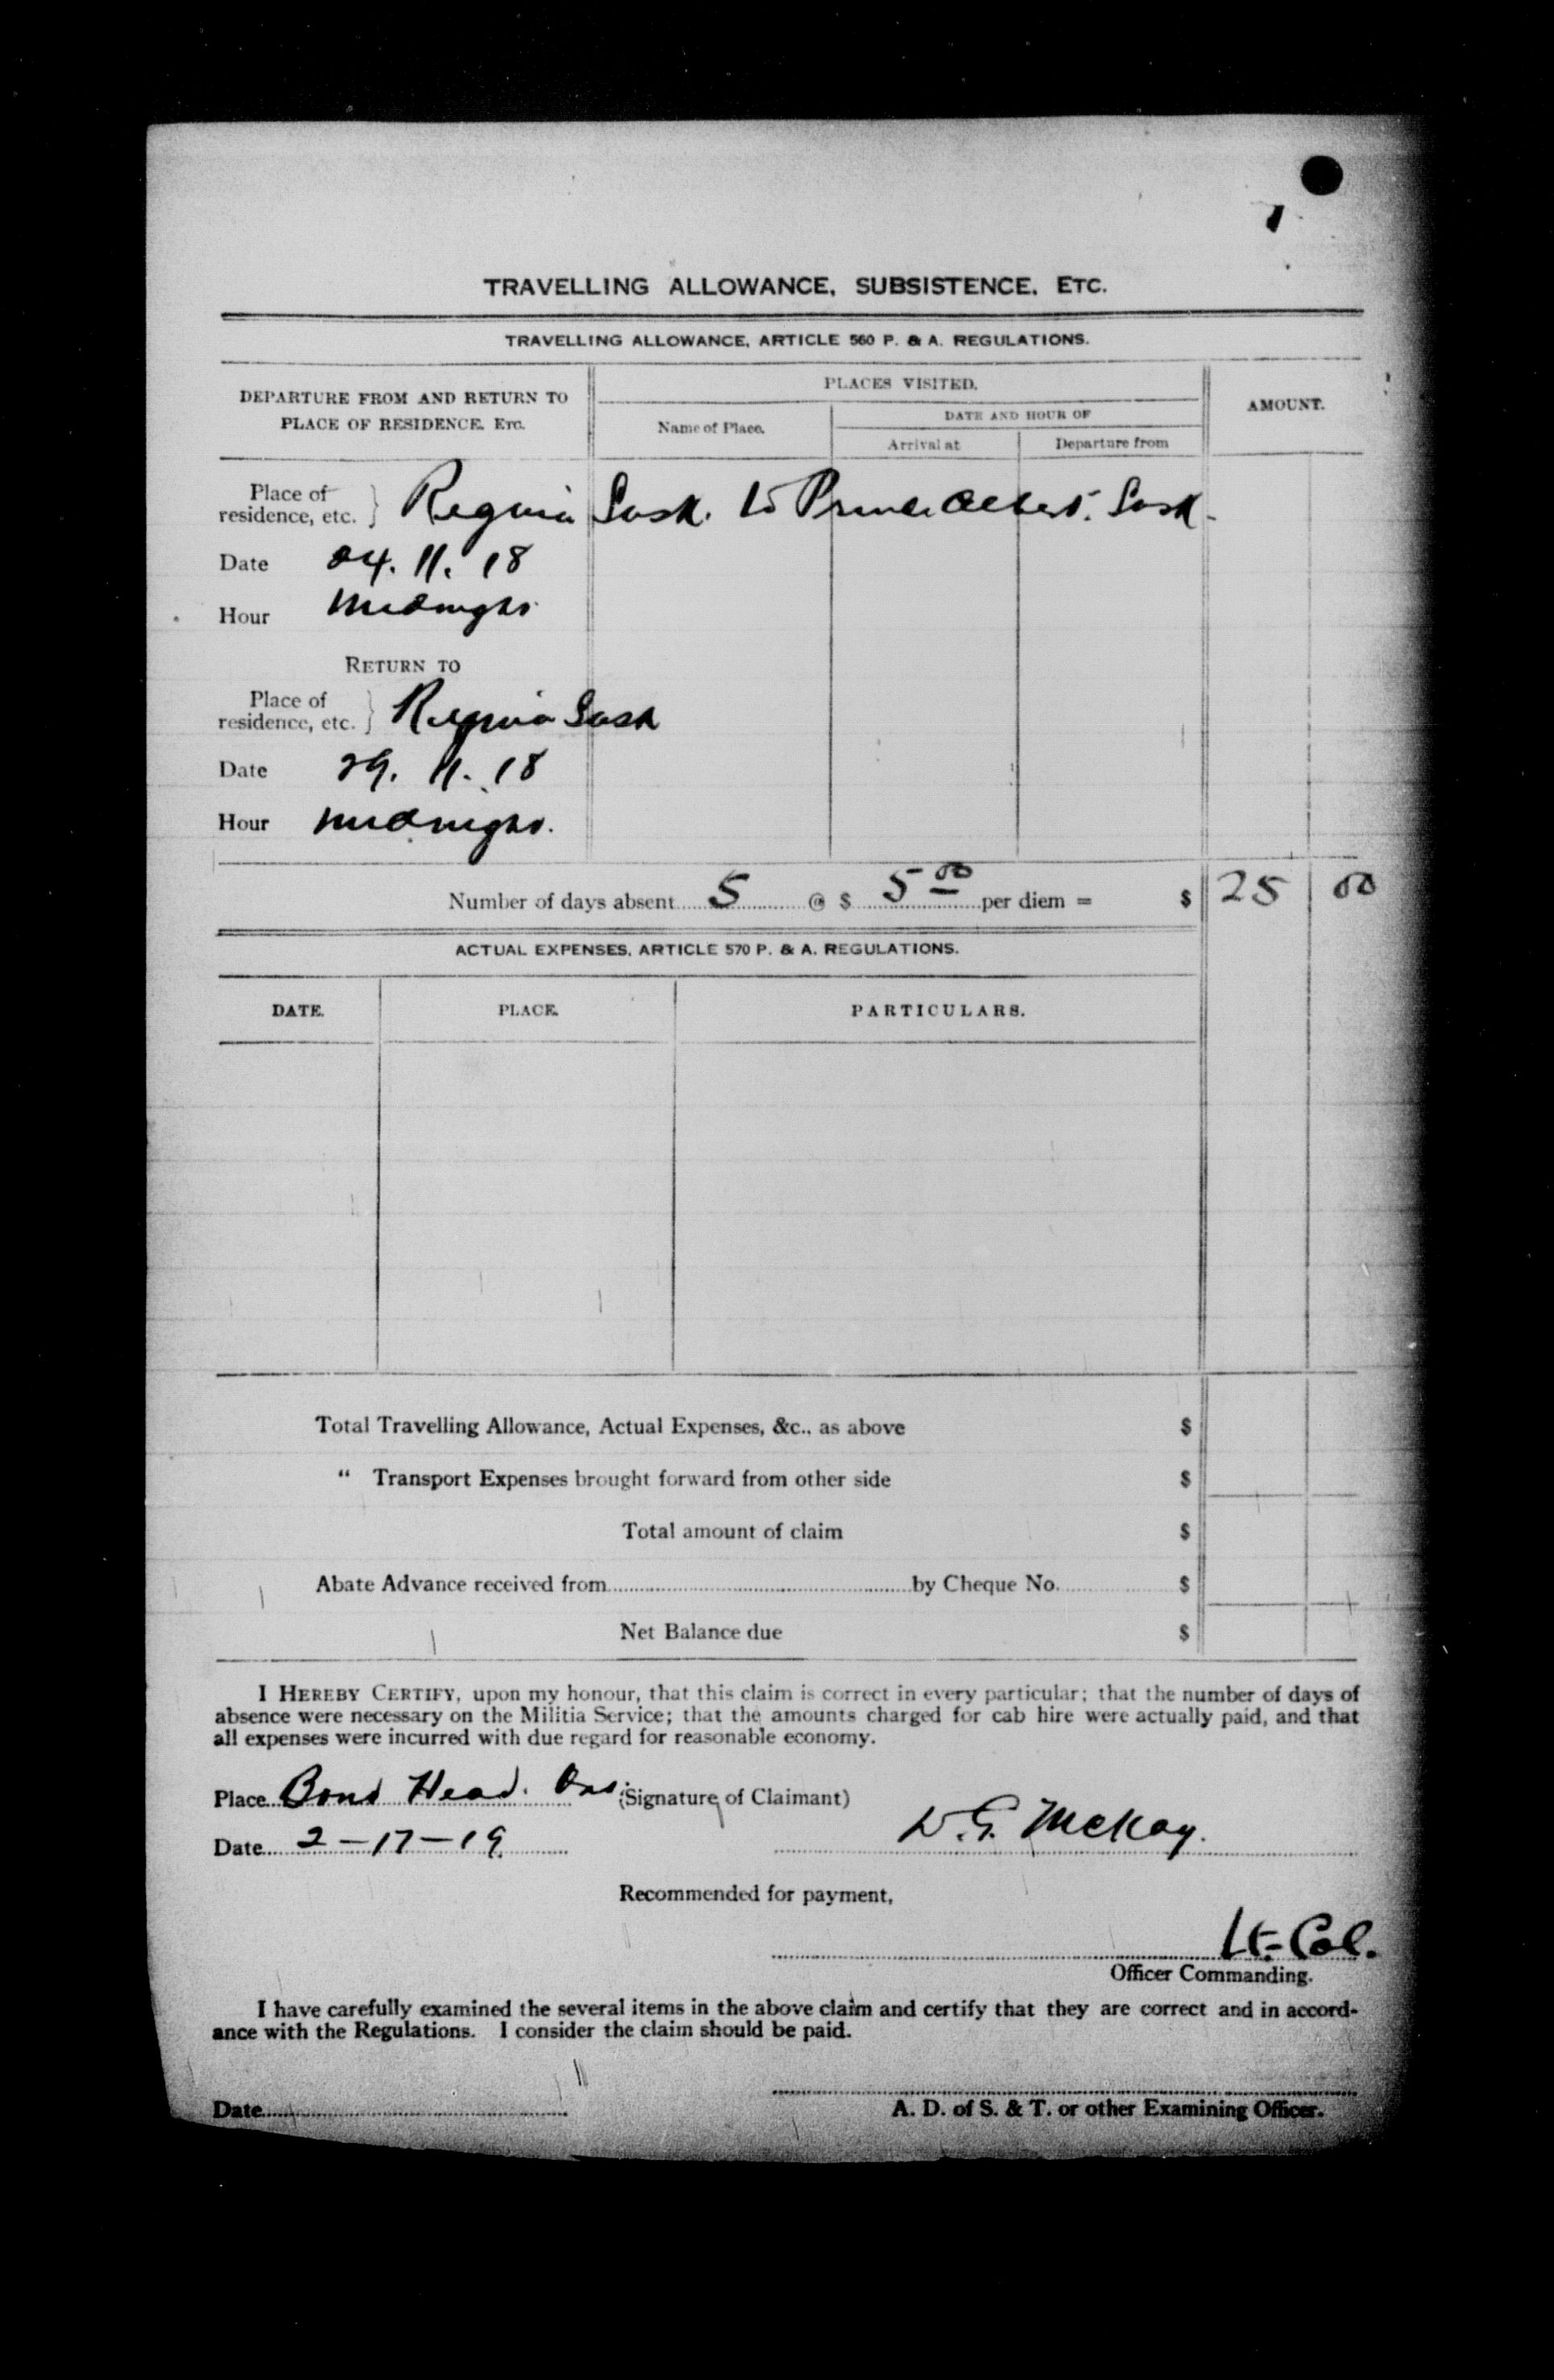 TRAVELLING ALLOWANCE, SUBSISTENCE, ETC.
TRAVELLING ALLOWANCE, ARTICLE 560 P. & A. REGULATIONS.
DEPARTURE FROM AND RETURN TO
PLACE OF RESIDENCE, ETC.
PLACES VISITED.
Name of Place.
DATE AND HOUR OF
Arrival at
Departure from
AMOUNT.
Place of
residence, etc. } Regina Sask. to Prince Albert. Sask.
Date 24. 11. 18
Hour Midnight
RETURN TO
Place of
residence, etc. } Regina Sask
Date 29. 11. 18
Hour midnight.
Number of days absent 5 @ $ 5 00 per diem = $ 25 00
ACTUAL EXPENSES, ARTICLE 570 P. & A. REGULATIONS.
DATE. PLACE. PARTICULARS.
Total Travelling Allowance, Actual Expenses, &c., as above $
" Transport Expenses brought forward from other side $
Total amount of claim $
Abate Advance received from by Cheque No. $
Net Balance due $
I HEREBY CERTIFY, upon my honour, that this claim is correct in every particular; that the number of days of
absence were necessary on the Militia Service; that the amounts charged for cab hire were actually paid, and that
all expenses were incurred with due regard for reasonable economy.
Place Bond Head. Ont. (Signature of Claimant)
Date 2-17-19 W.G. McKay.
Recommended for payment,
Lt-Col.
Officer Commanding.
I have carefully examined the several items in the above claim and certify that they are correct and in accord-
ance with the Regulations. I consider the claim should be paid.
Date
A. D. of S. & T. or other Examining Officer.